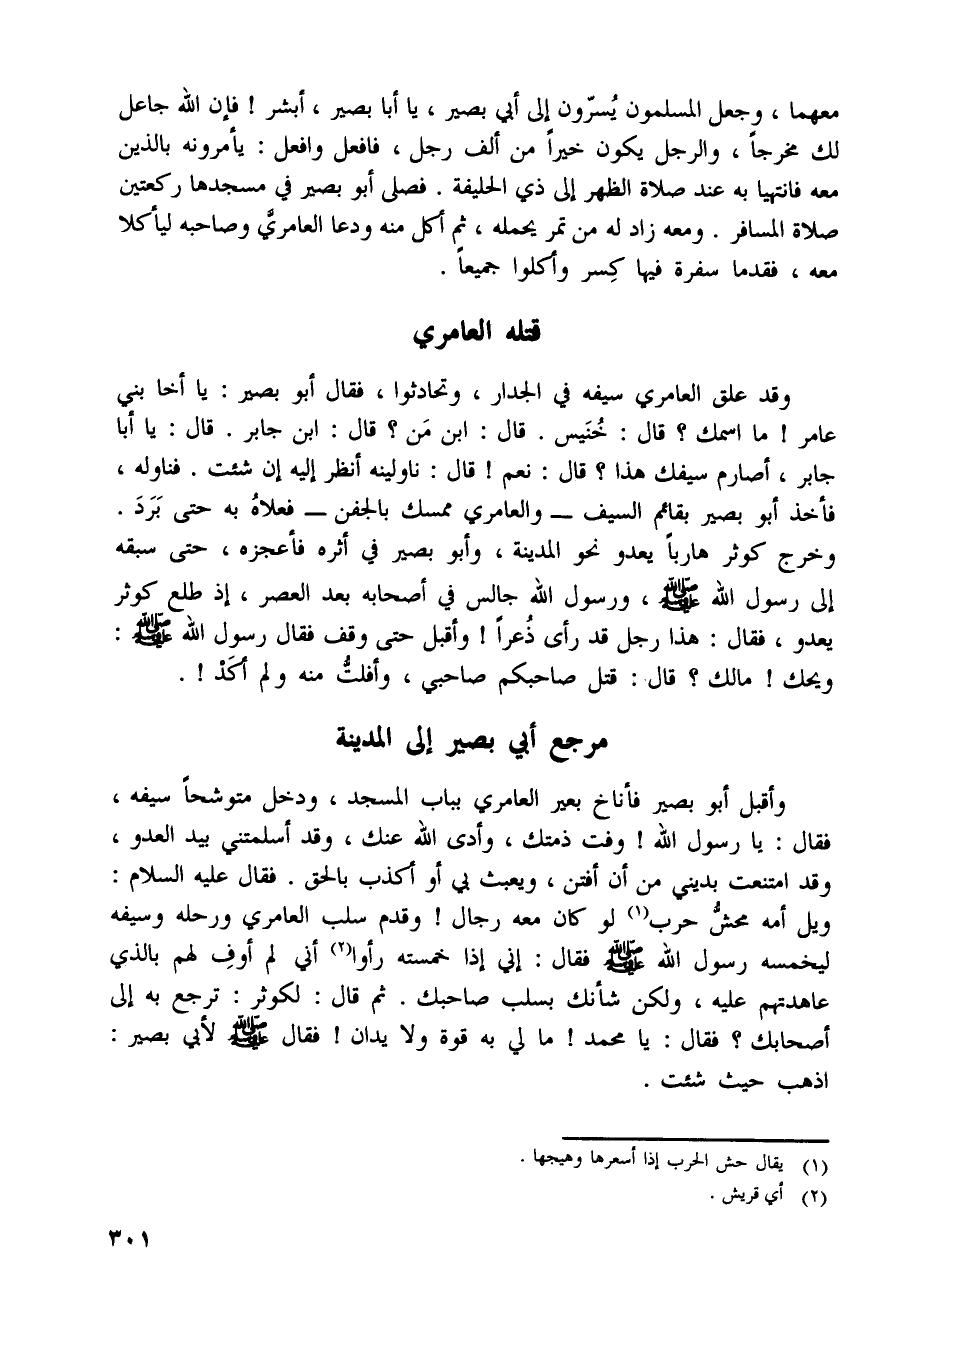 معهما ، وجعل المسلمون يُسرّون إلى أبي بصير ، يا أبا بصير ، أبشر ! فإن الله جاعل
لك مخرجاً ، والرجل يكون خيراً من ألف رجل ، فافعل وافعل : يأمرونه بالذين
معه فانتهيا به عند صلاة الظهر إلى ذي الحليفة . فصلى أبو بصير في مسجدها ركعتين
صلاة المسافر . ومعه زاد له من تمر يحمله ، ثم أكل منه ودعا العامريَّ وصاحبه ليأكلا
معه ، فقدما سفرة فيها كِسر وأكلوا جميعاً .
قتله العامري
وقد علق العامري سيفه في الجدار ، وتحادثوا ، فقال أبو بصير : يا أخا بني
عامر ! ما اسمك ؟ قال : خُنَيس . قال : ابن مَن ؟ قال : ابن جابر . قال : يا أبا
جابر ، أصارم سيفك هذا ؟ قال : نعم ! قال : ناولينه أنظر إليه إن شئت . فناوله ،
فأخذ أبو بصير بقائم السيف — والعامري ممسك بالجفن — فعلاهُ به حتى بَرَدَ .
وخرج كوثر هارباً يعدو نحو المدينة ، وأبو بصير في أثره فأعجزه ، حتى سبقه
إلى رسول الله ﷺ ، ورسول الله جالس في أصحابه بعد العصر ، إذ طلع كوثر
يعدو ، فقال : هذا رجل قد رأى ذُعراً ! وأقبل حتى وقف فقال رسول الله ﷺ :
ويحك ! مالك ؟ قال : قتل صاحبكم صاحبي ، وأفلتُّ منه ولم أكَدْ ! .
مرجع أبي بصير إلى المدينة
وأقبل أبو بصير فأناخ بعير العامري بباب المسجد ، ودخل متوشحاً سيفه ،
فقال : يا رسول الله ! وفت ذمتك ، وأدى الله عنك ، وقد أسلمتني بيد العدو ،
وقد امتنعت بديني من أن أفتن ، ويعبث بي أو أكذب بالحق . فقال عليه السلام :
ويل أمه محشُّ حرب(١) لو كان معه رجال ! وقدم سلب العامري ورحله وسيفه
ليخمسه رسول الله ﷺ فقال : إني إذا خمسته رأوا(٢) أني لم أوفِ لهم بالذي
عاهدتهم عليه ، ولكن شأنك بسلب صاحبك . ثم قال : لكوثر : ترجع به إلى
أصحابك ؟ فقال : يا محمد ! ما لي به قوة ولا يدان ! فقال ﷺ لأبي بصير :
اذهب حيث شئت .
(١) يقال حش الحرب إذا أسعرها وهيجها .
(٢) أي قريش .
٣٠١